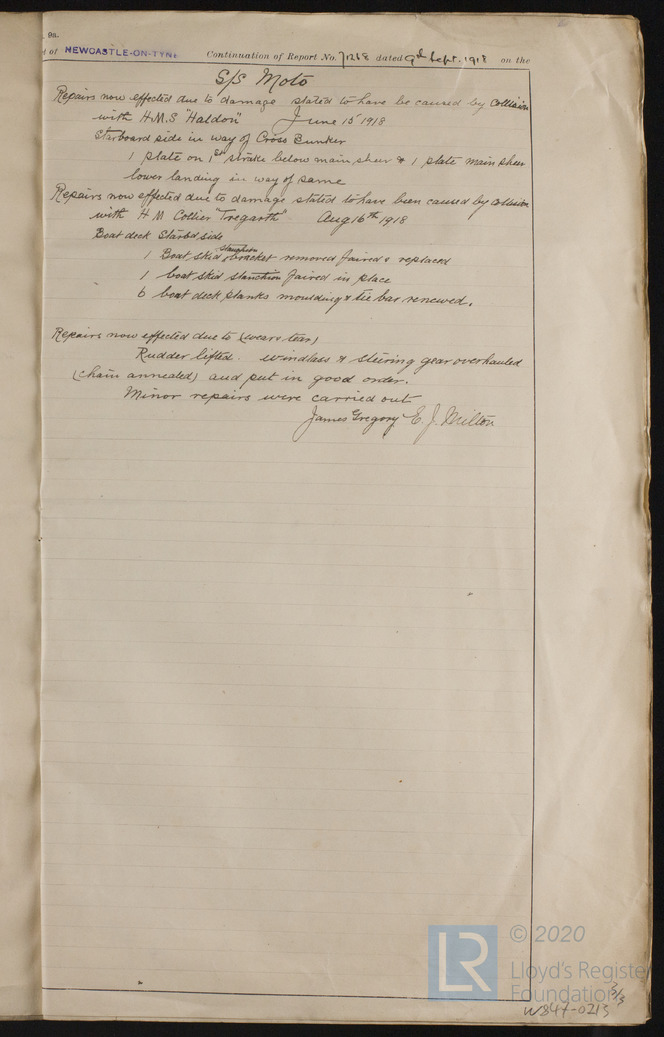 9a.
of NEWCASTLE-ON-TYNE Continuation of Report No. 71268 dated 9th Sept. 1918 on the
S/S Moto
Repairs now effected due to damage stated to have be caused by Collision
with H.M.S "Haldon" June 15 1918
Starboard side in way of Cross Bunker
1 plate on 1st strake below main sheer & 1 plate main sheer
lower landing in way of same
Repairs now effected due to damage stated to have been caused by collision
with H M Collier "Tregarth" Aug 16th 1918
Boat deck Starbd side
1 Boat skid stanchion bracket removed faired & replaced
1 boat skid stanchion faired in place
6 boat deck planks moulding & tie bar renewed.
Repairs now effected due to (wear & tear)
Rudder lifted. windlass & steering gear overhauled
(chain annealed) and put in good order.
Minor repairs were carried out
James Gregory E. J. Milton
LR © 2020
Lloyd's Register
Foundation
3/3
W847-0213